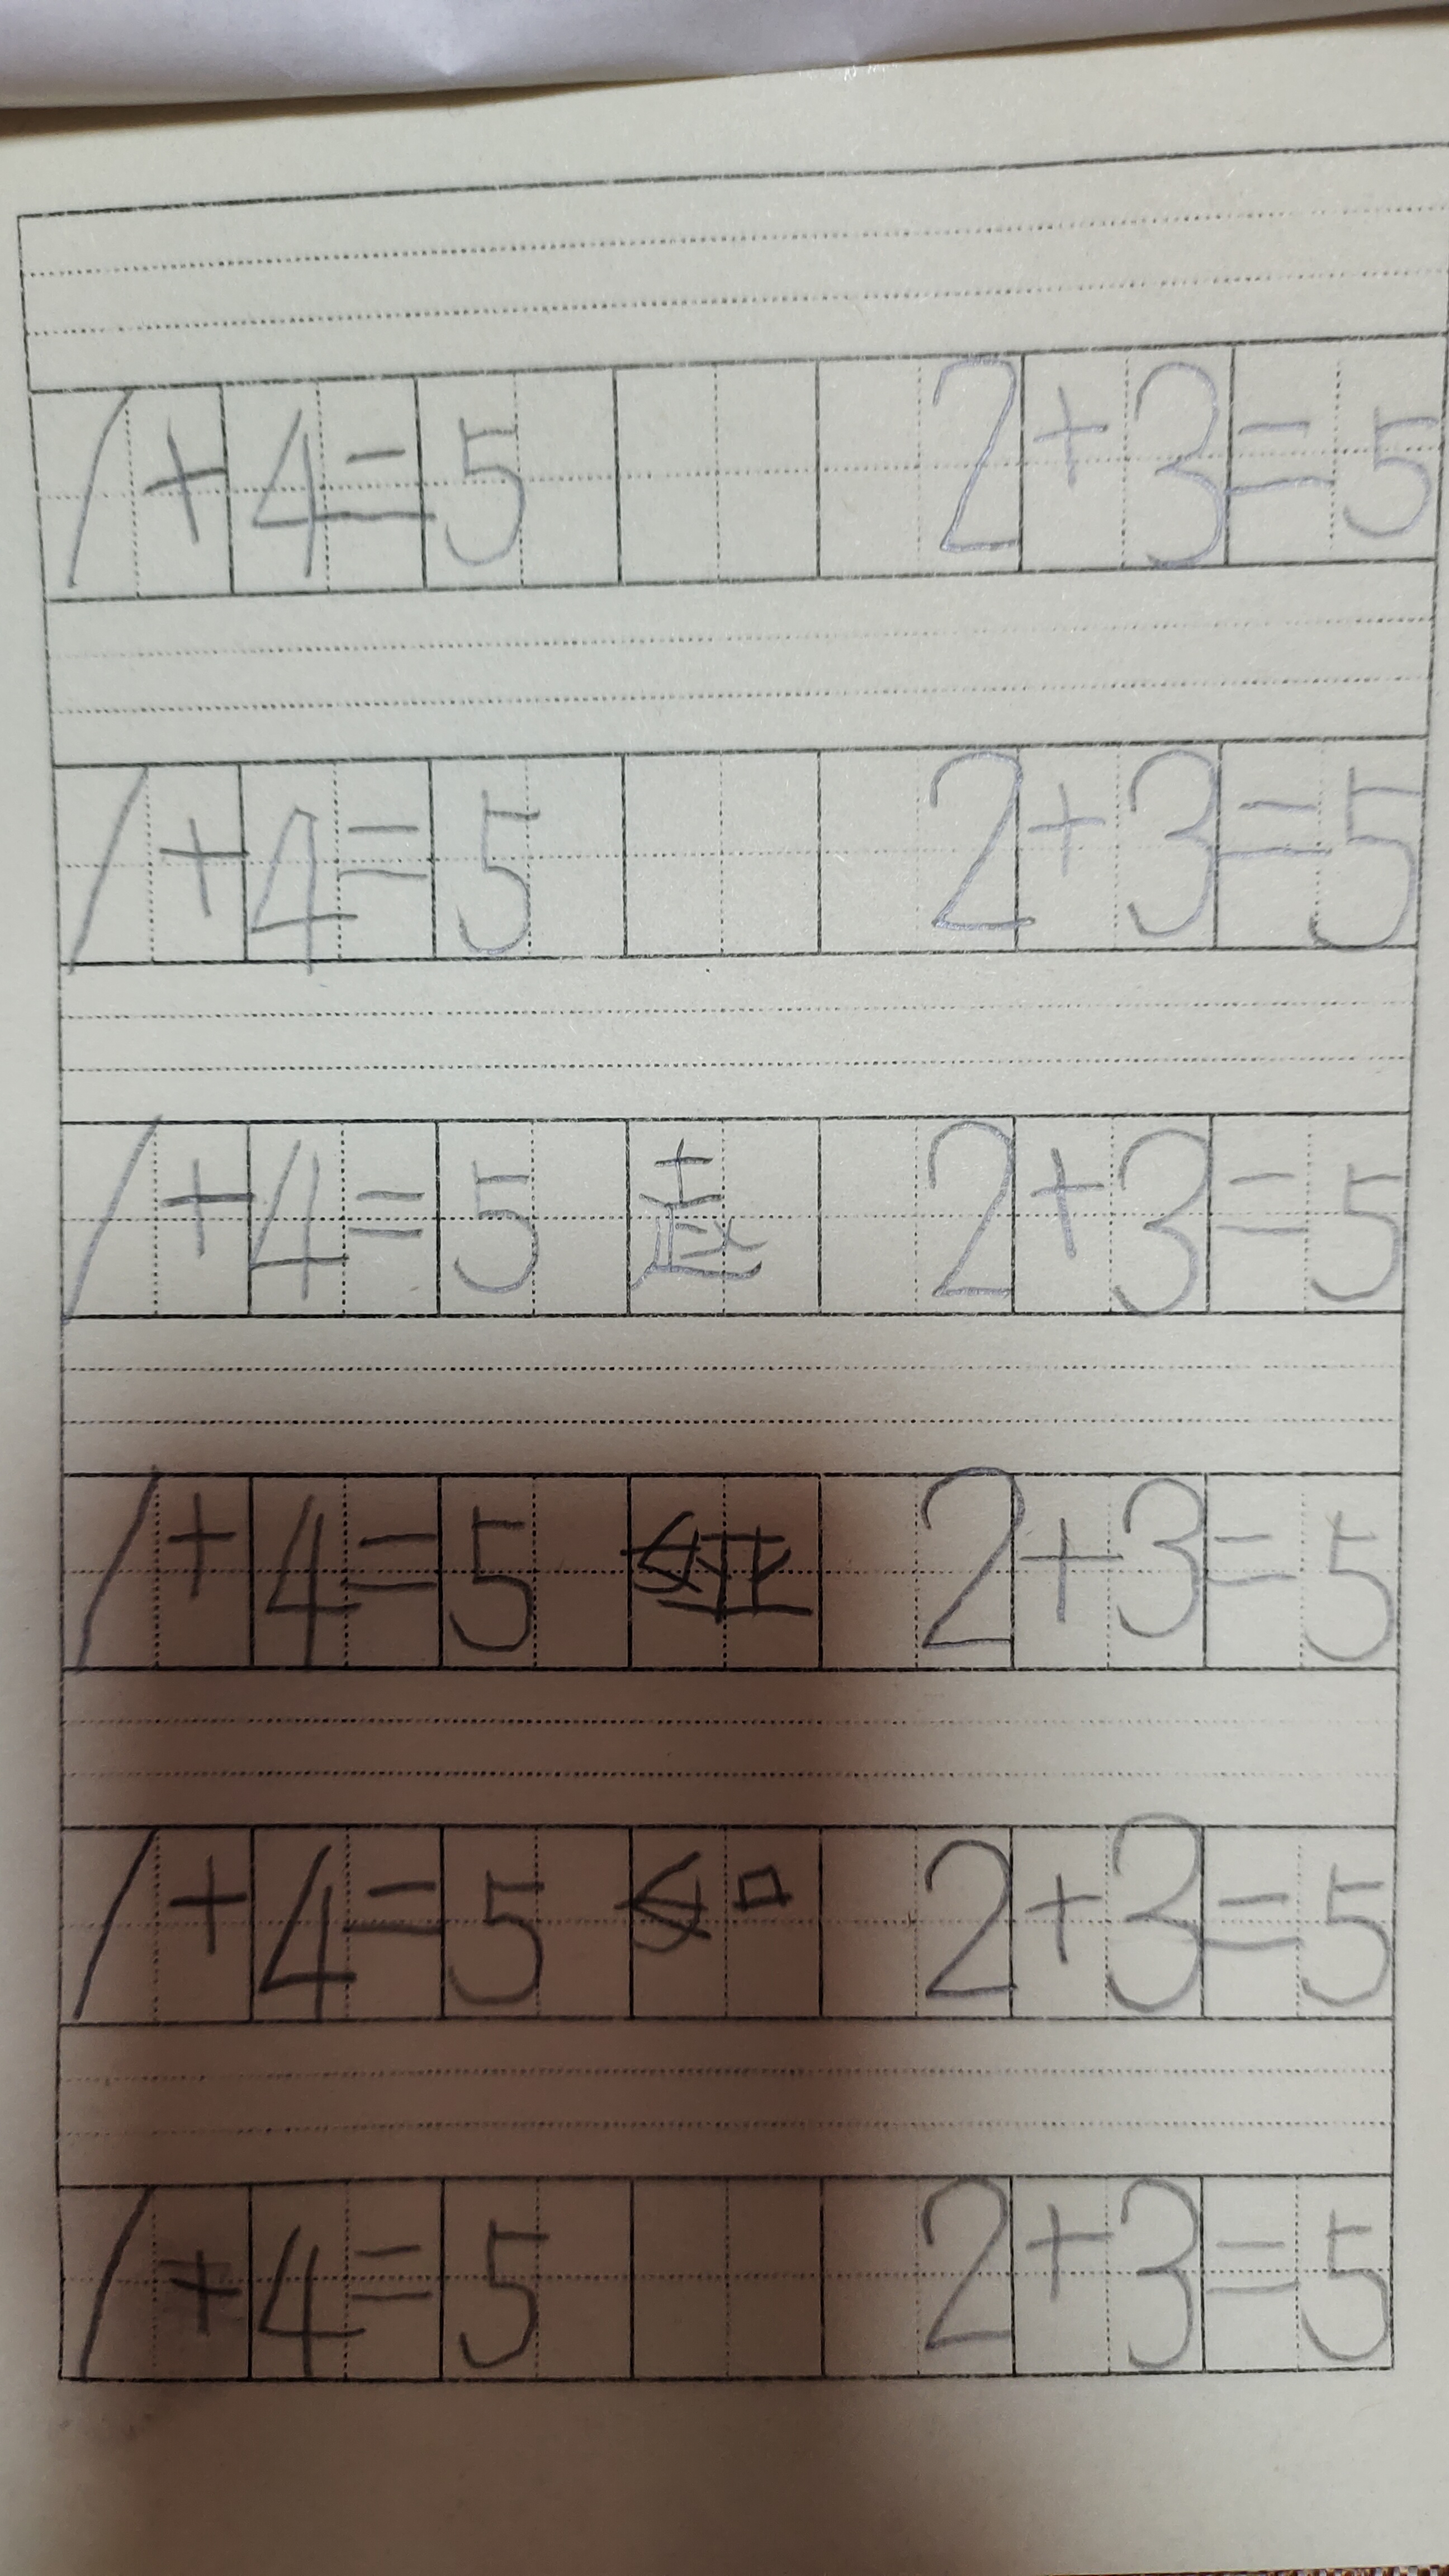 1+4=5 2+3=5
1+4=5 2+3=5
1+4=5 2+3=5
1+4=5 2+3=5
1+4=5 如 2+3=5
1+4=5 2+3=5